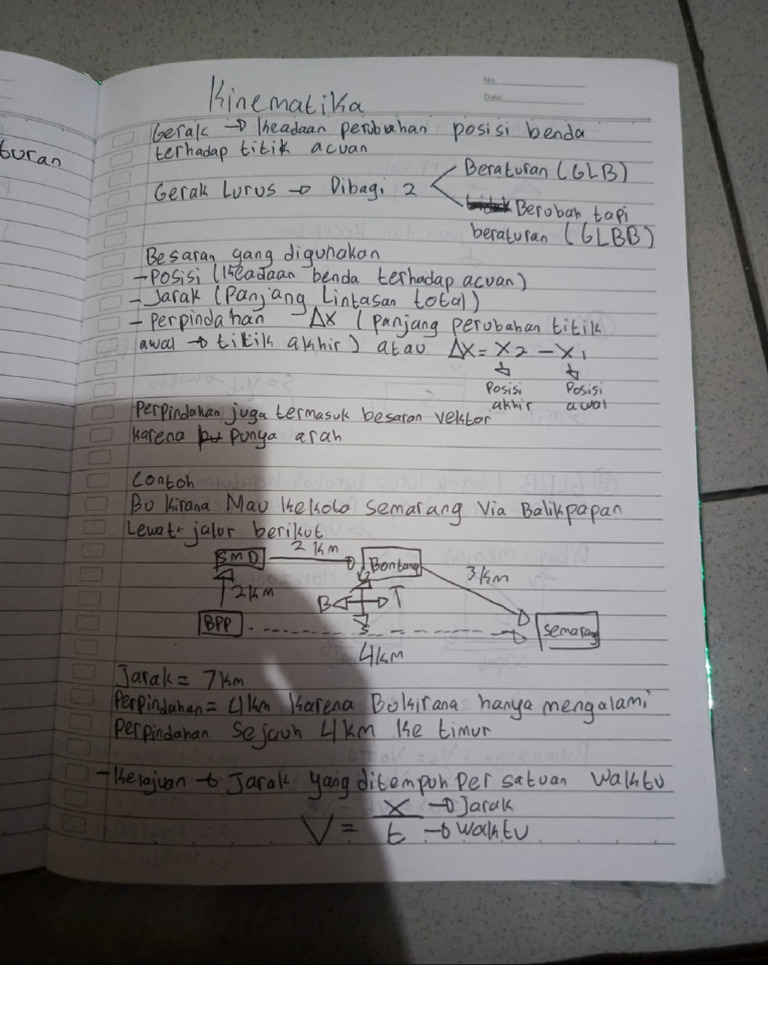 turan
No
Date
Kinematika
Gerak → Keadaan perubahan posisi benda
terhadap titik acuan
Gerak Lurus → Dibagi 2
Beraturan (GLB)
Berubah tapi
beraturan (GLBB)
Besaran yang digunakan
- Posisi (Keadaan benda terhadap acuan)
- Jarak (Panjang Lintasan total)
- Perpindahan Δx (panjang perubahan titik
awal → titik akhir) atau Δx = x2 - x1
Posisi akhir
Posisi awal
Perpindahan juga termasuk besaran vektor
karena punya arah
Contoh
Bu Kirana Mau ke kota Semarang Via Balikpapan
Lewat jalur berikut
SMD 2 km Bontang
3 km
2 km
B T
S
BPP
Semarang
4 km
Jarak = 7 km
Perpindahan = 4 km karena Bu kirana hanya mengalami
Perpindahan sejauh 4 km ke timur
- Kelajuan → Jarak yang ditempuh Per satuan waktu
V = x → Jarak
t → waktu